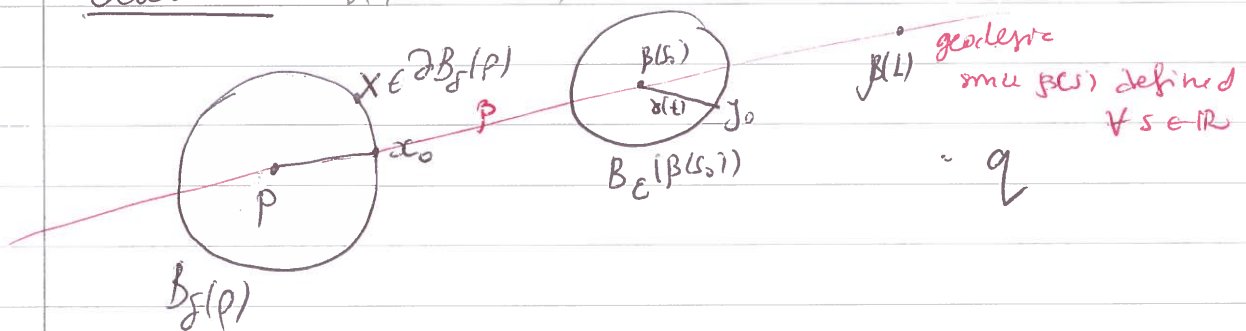 X ∈ ∂B_δ(p)
β(s₀)
β(L)
geodesic
since β(s) defined
∀ s ∈ ℝ
β
γ(t)
y₀
x₀
p
B_ε(β(s₀))
q
B_δ(p)